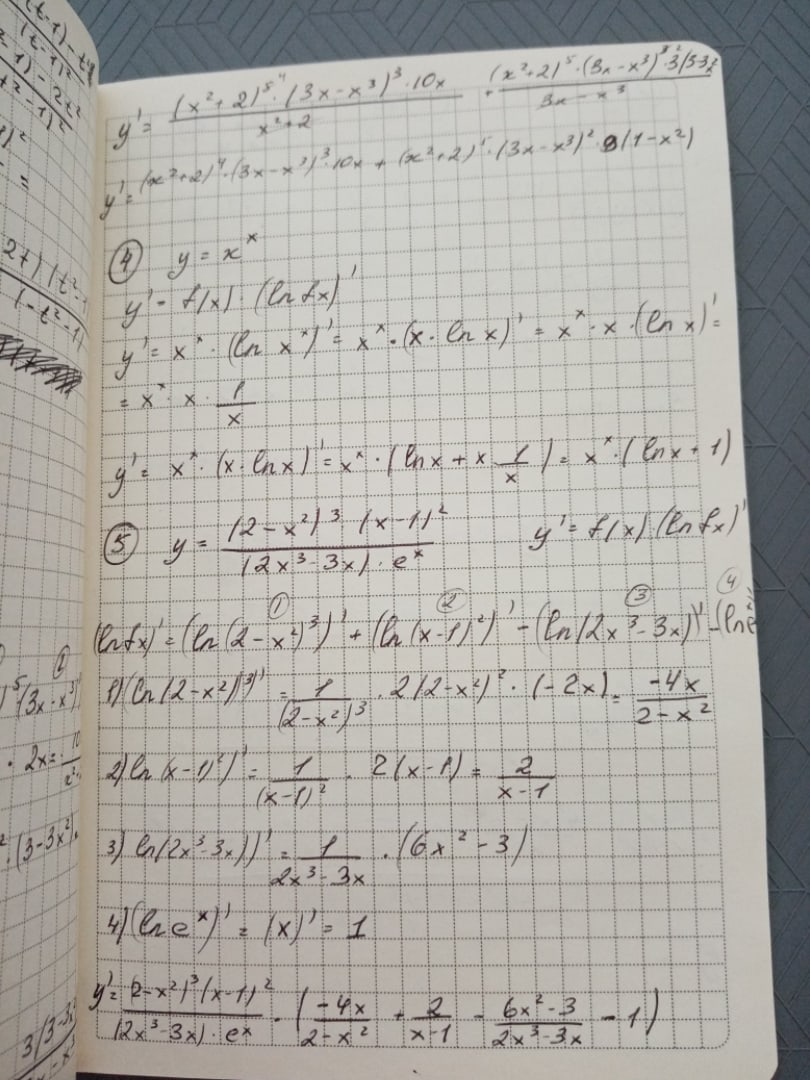 y' = (x²+2)⁵⁴·(3x-x³)³·10x / x²+2 + (x²+2)⁵·(3x-x³)³²·3(3-3x / 3x-x³
y' = (x²+2)⁴·(3x-x³)³·10x + (x²+2)⁵·(3x-x³)²·9(1-x²)
④ y = x^x
y' = f(x)·(ln fx)'
y' = x^x·(ln x^x)' = x^x·(x·ln x)' = x^x·x·(ln x)' =
= x^x·x·1/x
y' = x^x·(x·lnx)' = x^x·(lnx + x 1/x) = x^x·(lnx + 1)
⑤ y = (2-x²)³·(x-1)² / (2x³-3x)·e^x y' = f(x)·(ln fx)'
① ② ③ ④
(ln fx)' = (ln(2-x²)³)' + (ln(x-1)²)' - (ln(2x³-3x))' - (ln e
1)(ln(2-x²)³)' = 1/(2-x²)³ · 2(2-x²)²·(-2x) = -4x/2-x²
2) ln(x-1)²)' = 1/(x-1)² · 2(x-1) = 2/x-1
3) ln(2x³-3x))' = 1/2x³-3x · (6x²-3)
4)(ln e^x)' = (x)' = 1
y' = (2-x²)³(x-1)² / (2x³-3x)·e^x · (-4x/2-x² + 2/x-1 - 6x²-3/2x³-3x - 1)